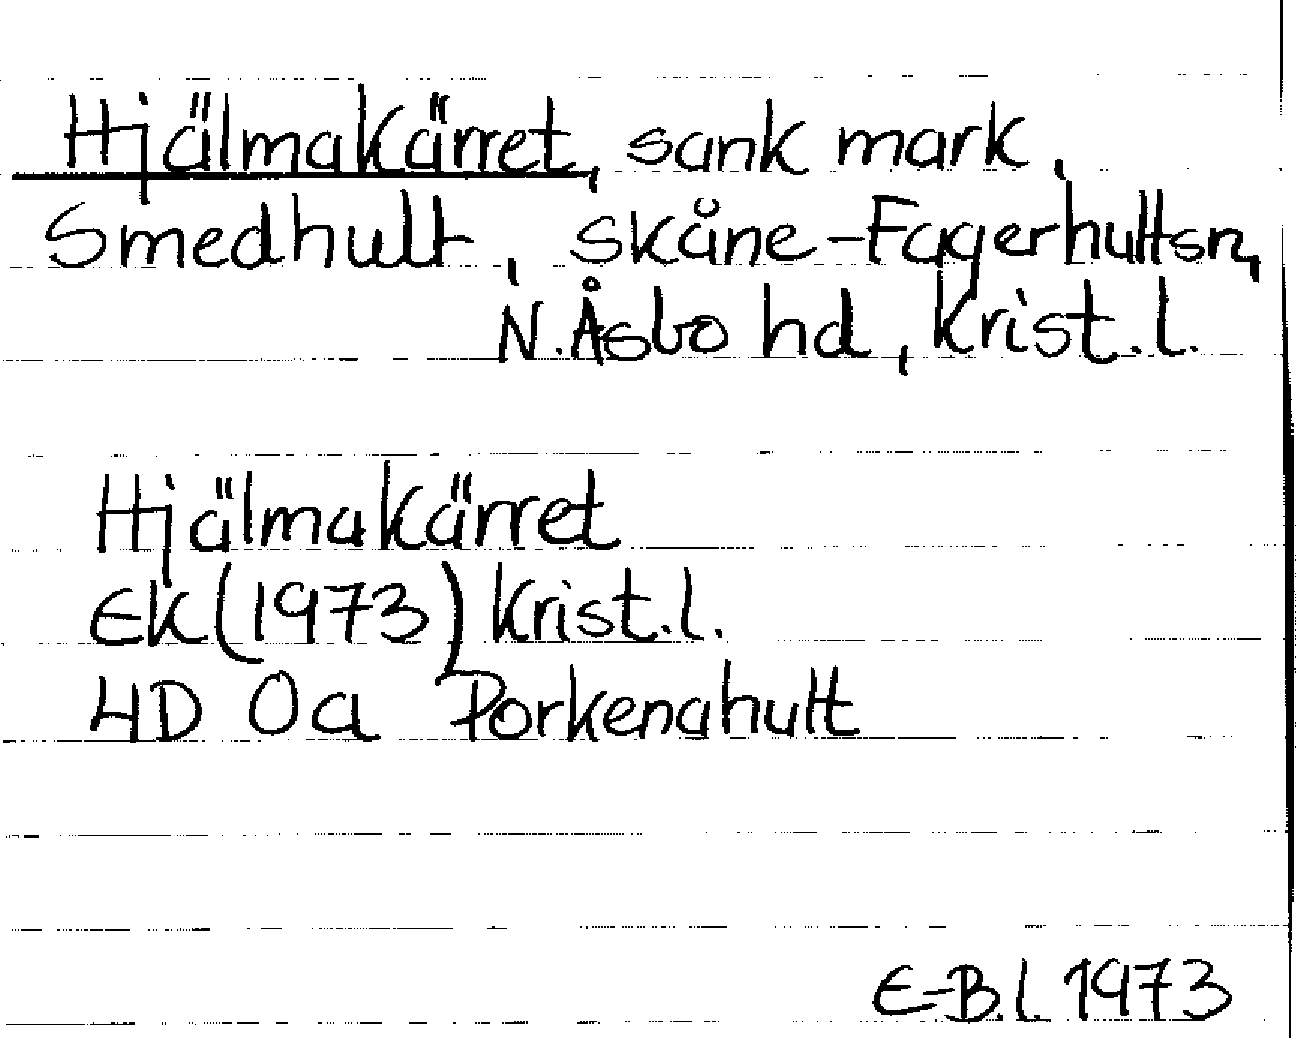 Hjälmakärret, sank mark,
Smedhult, Skåne-Fagerhultsn,
N. Åsbo hd, Krist.l.
Hjälmakärret
EK (1973) Krist.l.
4D 0a Porkenahult
E-B.l. 1973